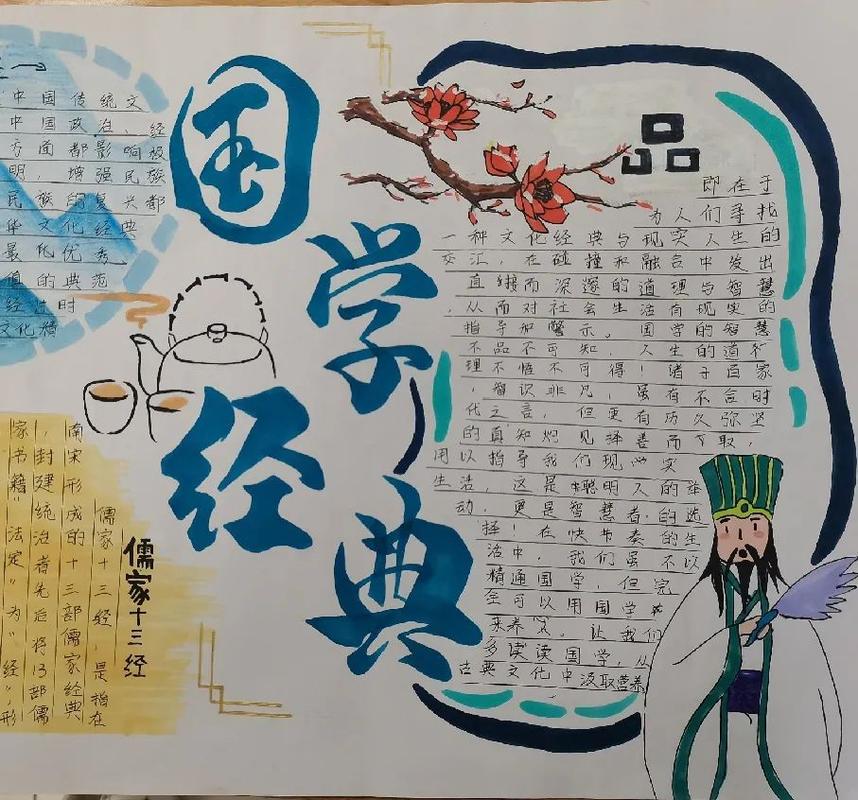 中国传统文
中国政治、经
方面都影响极
明，增强民族
民族的复兴都
华文化经典
最优秀
值的典范
经过时
文化精
国
学
经
典
品
即在于
为人们寻找
一种文化经典与现实人生的
交汇，在碰撞和融合中发出
直接而深邃的道理与智慧
，从而对社会生活有现实的
指导和警示。国学的智慧
不品不可知，人生的道
理不悟不可得！诸子百家
，智识非凡，虽有不合时
代之言，但更有历久弥坚
的真知灼见择善而取，
用以指导我们现实
生活，这是聪明人的举
动，更是智慧者的选
择！在快节奏的生
活中，我们虽不以
精通国学，但完
全可以用国学
来养，让我们
多读读国学，从
古典文化中汲取营养
儒家十三经
儒家十三经，是指在
南宋形成的十三部儒家经典
，封建统治者先后将13部儒
家书籍"法定"为"经"，形